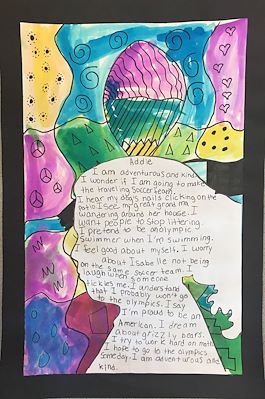 Addie
I am adventurous and kind.
I wonder if I am going to make
the traveling Soccer team.
I hear my dog's nails clicking on the
patio I see my great grandma
wandering around her house. I
want people to stop littering.
I pretend to be an olympic
Swimmer when I'm swimming.
I feel good about myself. I worry
about Isabelle not being
on the same soccer team. I
laugh when someone
tickles me. I understand
that I probably won't go
to the olympics. I say
I'm proud to be an
American. I dream
about grizzly bears.
I try to work hard on math
I hope to go to the olympics
Someday. I am adventurous and
kind.